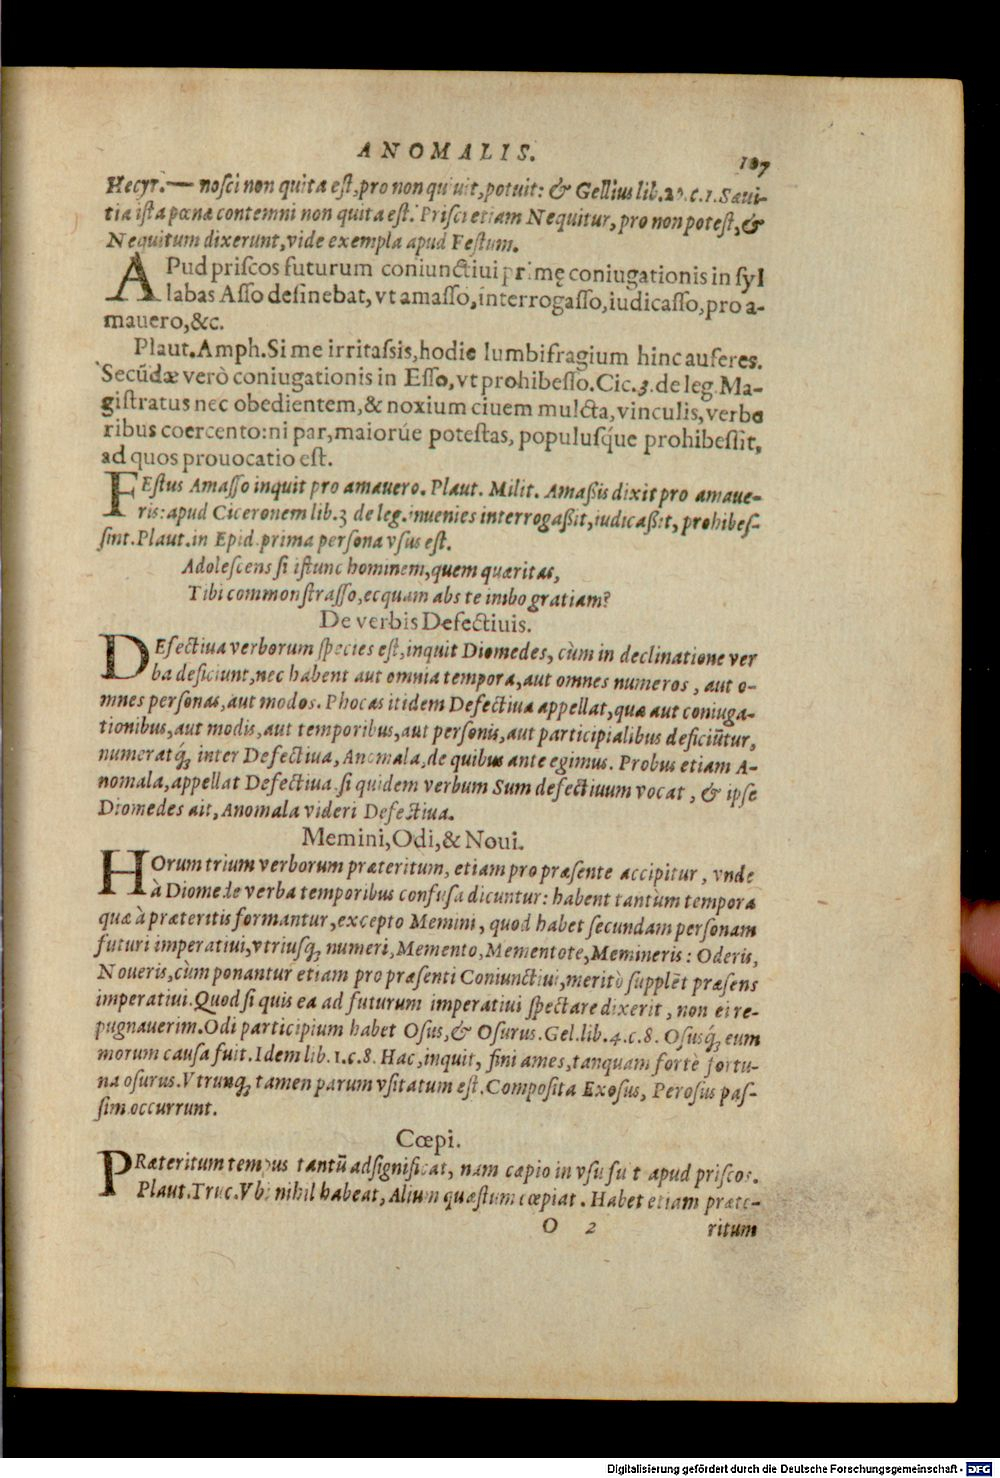 ANOMALIS.
107
Hecyr. — nosci non quita est, pro non quiuit, potuit: & Gellius lib. 20. c. 1. Sæui-
tia ista pœna contemni non quita est. Prisci etiam Nequitur, pro non potest, &
Nequitum dixerunt, vide exempla apud Festum.
APud priscos futurum coniunctiui primę coniugationis in syl
labas Asso desinebat, vt amasso, interrogasso, iudicasso, pro a-
mauero, &c.
Plaut. Amph. Si me irritassis, hodie lumbifragium hinc auferes.
Secūdæ verò coniugationis in Esso, vt prohibesso. Cic. 3. de leg. Ma-
gistratus nec obedientem, & noxium ciuem mulcta, vinculis, verbe
ribus coercento: ni par, maiorúe potestas, populusq́ue prohibessit,
ad quos prouocatio est.
FEstus Amasso inquit pro amauero. Plaut. Milit. Amaßis dixit pro amaue-
ris: apud Ciceronem lib. 3 de leg. inuenies interrogaßit, iudicaßit, prohibes-
sint. Plaut. in Epid. prima persona vsus est.
Adolescens si istunc hominem, quem quæritas,
Tibi commonstrasso, ecquam abs te inibo gratiam?
De verbis Defectiuis.
DEfectiua verborum species est, inquit Diomedes, cùm in declinatione ver
ba deficiunt, nec habent aut omnia tempora, aut omnes numeros, aut o-
mnes personas, aut modos. Phocas itidem Defectiua appellat, quæ aut coniuga-
tionibus, aut modis, aut temporibus, aut personis, aut participialibus deficiūtur,
numeratq́ꝫ inter Defectiua, Anomala, de quibus ante egimus. Probus etiam A-
nomala, appellat Defectiua. si quidem verbum Sum defectiuum vocat, & ipse
Diomedes ait, Anomala videri Defectiua.
Memini, Odi, & Noui.
HOrum trium verborum præteritum, etiam pro præsente accipitur, vnde
à Diomede verba temporibus confusa dicuntur: habent tantùm tempora
quæ à præteritis formantur, excepto Memini, quod habet secundam personam
futuri imperatiui, vtriusqꝫ numeri, Memento, Mementote, Memineris: Oderis,
Noueris, cùm ponantur etiam pro præsenti Coniunctiui, meritò supplēt præsens
imperatiui. Quod si quis ea ad futurum imperatiui spectare dixerit, non ei re-
pugnauerim. Odi participium habet Osus, & Osurus. Gel. lib. 4. c. 8. Osusq́ꝫ eum
morum causa fuit. Idem lib. 1. c. 8. Hac, inquit, fini ames, tanquam fortè fortu-
na osurus. Vtrunqꝫ tamen parum vsitatum est. Composita Exosus, Perosus pas-
sim occurrunt.
Cœpi.
PRæteritum tempus tantū adsignificat, nam cœpio in vsu fuit apud priscos.
Plaut. Truc. Vbi nihil habeat, Alium quæstum cœpiat. Habet etiam præte-
O 2
ritum
Digitalisierung gefördert durch die Deutsche Forschungsgemeinschaft - DFG